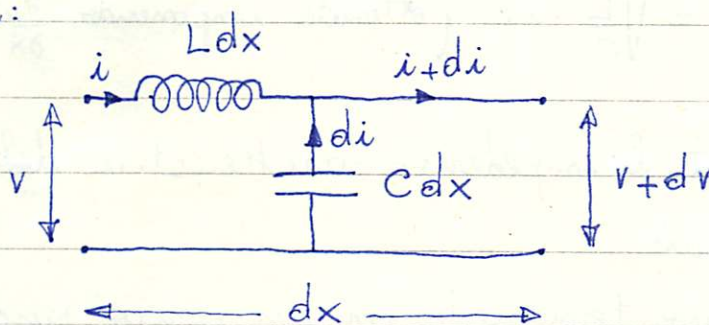 Ldx
i
i+di
di
v
Cdx
v+dv
dx